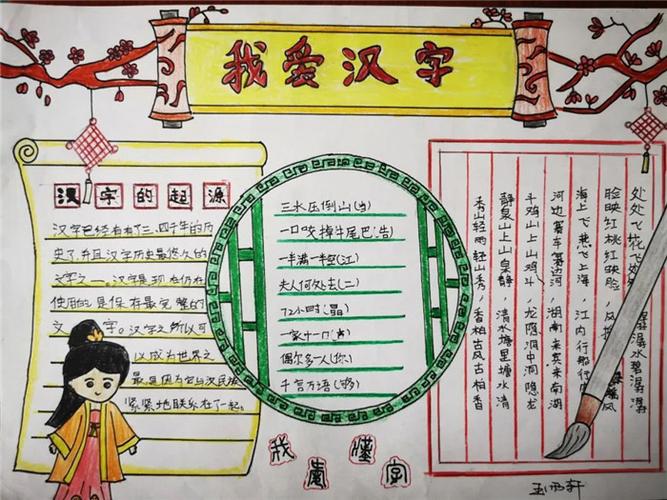 我爱汉字
汉字的起源
汉字已经有有了三、四千年的历
史了,并且汉字历史最悠久的
文字之一。汉字是现在仍在
使用的且保存最完整的
文字。汉字之所以可
以成为世界之
最是因为它与汉民族
紧紧地联系在了一起。
三水压倒山(当)
一口咬掉牛尾巴(告)
一半满一半空(江)
夫人何处去(二)
72小时(晶)
一家十一口(吉)
偶尔多人(你)
千言万语(够)
我 懂 字
处处飞花飞处 潺水碧潺潺
脸映红桃红映脸,风 风
海上飞燕飞上海,江内行船行
河边赛车赛边河,湖南来宾来南湖
斗鸡山上山鸡斗,龙隐洞中洞隐龙
静泉山上山泉静,清水塘里塘水清
秀山轻雨轻山秀,香柏古风古柏香